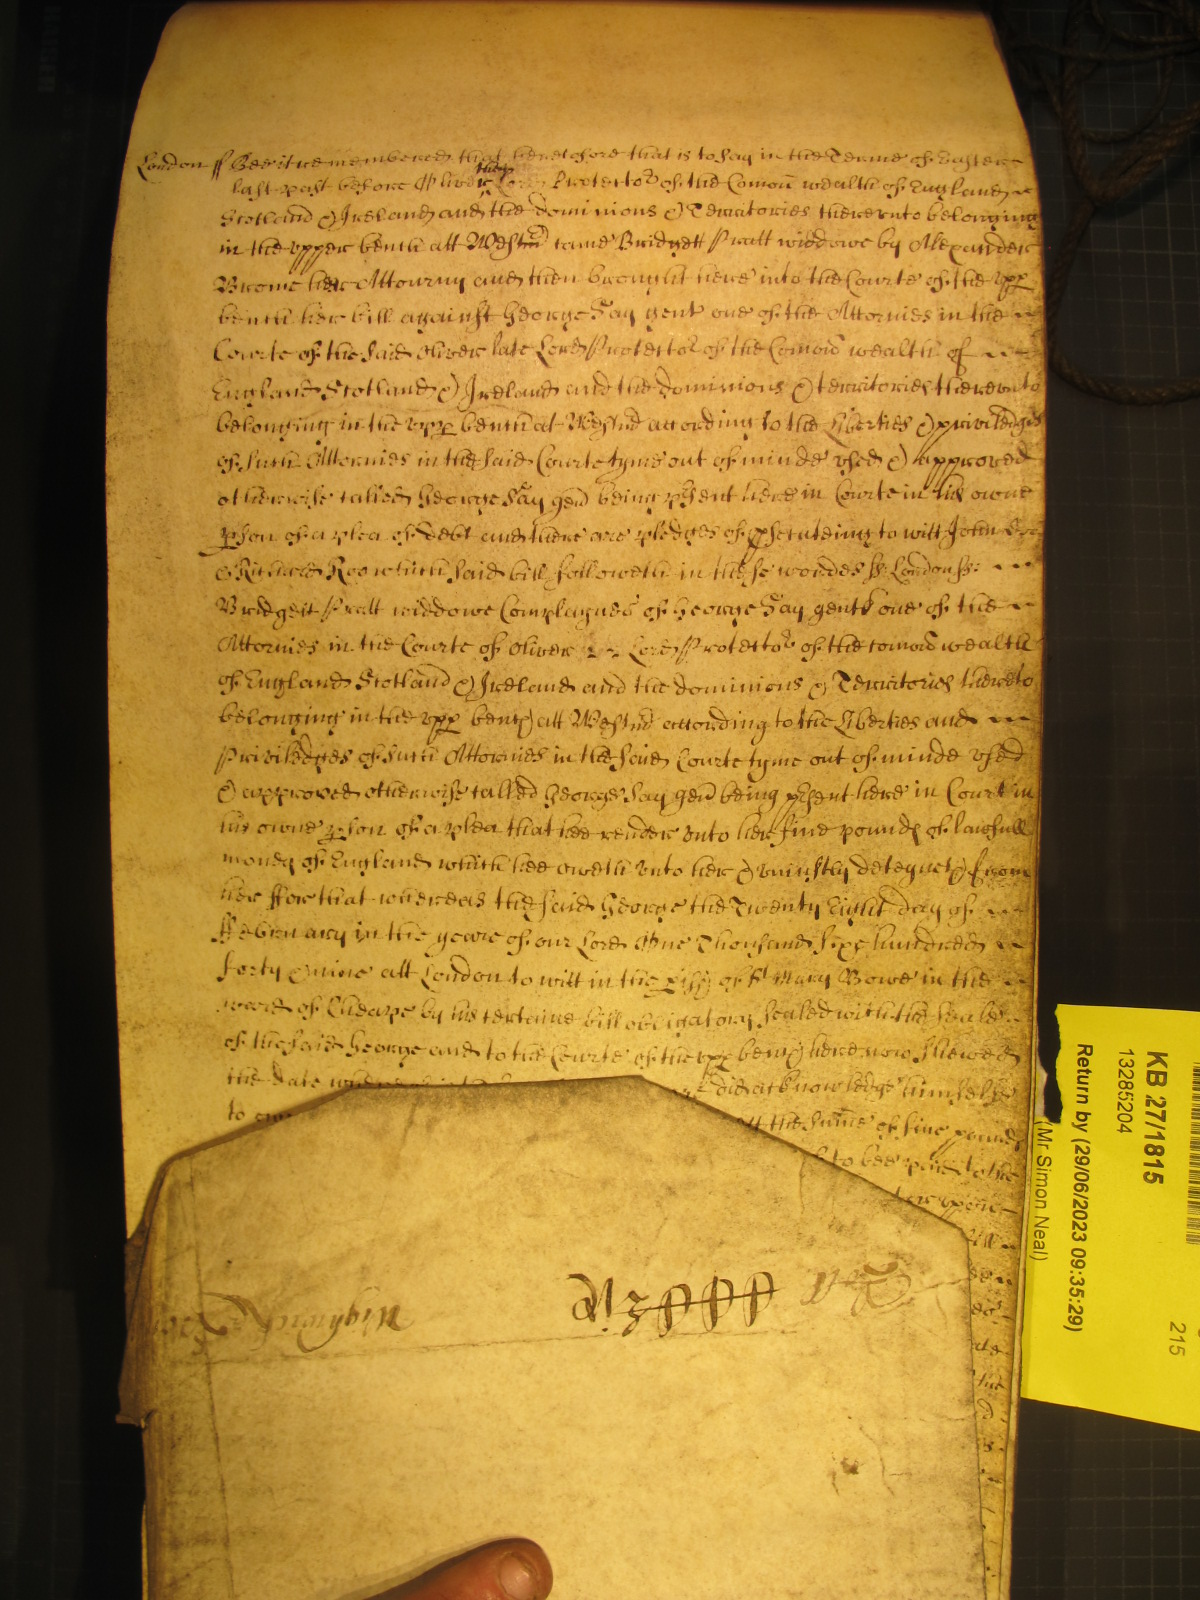 London ss Bee it remembered that heretofore that is to say in the Terme of Easter
last past before Oliver then Lord Protector of the Comon wealth of England
Scotland & Ireland and the dominions & Territories thereunto belonging
in the upper bench att Westm came Bridgett Pratt widdowe by Alexander
Brome her Attourny and then brought here into the Courte of the upp
bench her bill against George Say gent one of the Attornies in the
Courte of the said Oliver late Lord Protector of the Comon wealth of
England Scotland & Ireland and the dominions & territories thereunto
belonging in the upp bench at Westm according to the Liberties & priviledges
of such Attornies in the said Courte tyme out of minde used & approved
otherwise called George Say gen being psent here in Courte in his owne
pson of a plea of debt and there are pledges of psecuteing to witt John Doe
& Richard Roo which said bill followeth in these wordes ss London ss
Bridgett Pratt widdowe Complaynes of George Say gent one of the
Attornies in the Courte of Oliver Lord Protector of the comon wealth
of England Scotland & Ireland and the dominions & Territories thereto
belonging in the upp bench att Westm according to the Liberties and
Priviledges of such Attornies in the said Courte tyme out of minde used
& approved otherwise called George Say gen being psent here in Court in
his owne pson of a plea that hee render unto her five pounds of lawfull
money of England which hee oweth unto her & uniustly deteyneth from
her ffor that whereas the said George the Twenty Eight day of
ffebruary in the yeare of our Lord One Thousand sixe hundred
forty & nine att London to witt in the pish of St Mary Bowe in the
ward of Cheape by his certaine bill obligatory sealed with the seale
of the said George and to the Courte of the upp bench here now shewed
the date did acknowledge himselfe
to the sume of five pounds
to bee paid to the
KB 27/1815
13285204
Return by (29/06/2023 09:35:29)
(Mr Simon Neal)
215